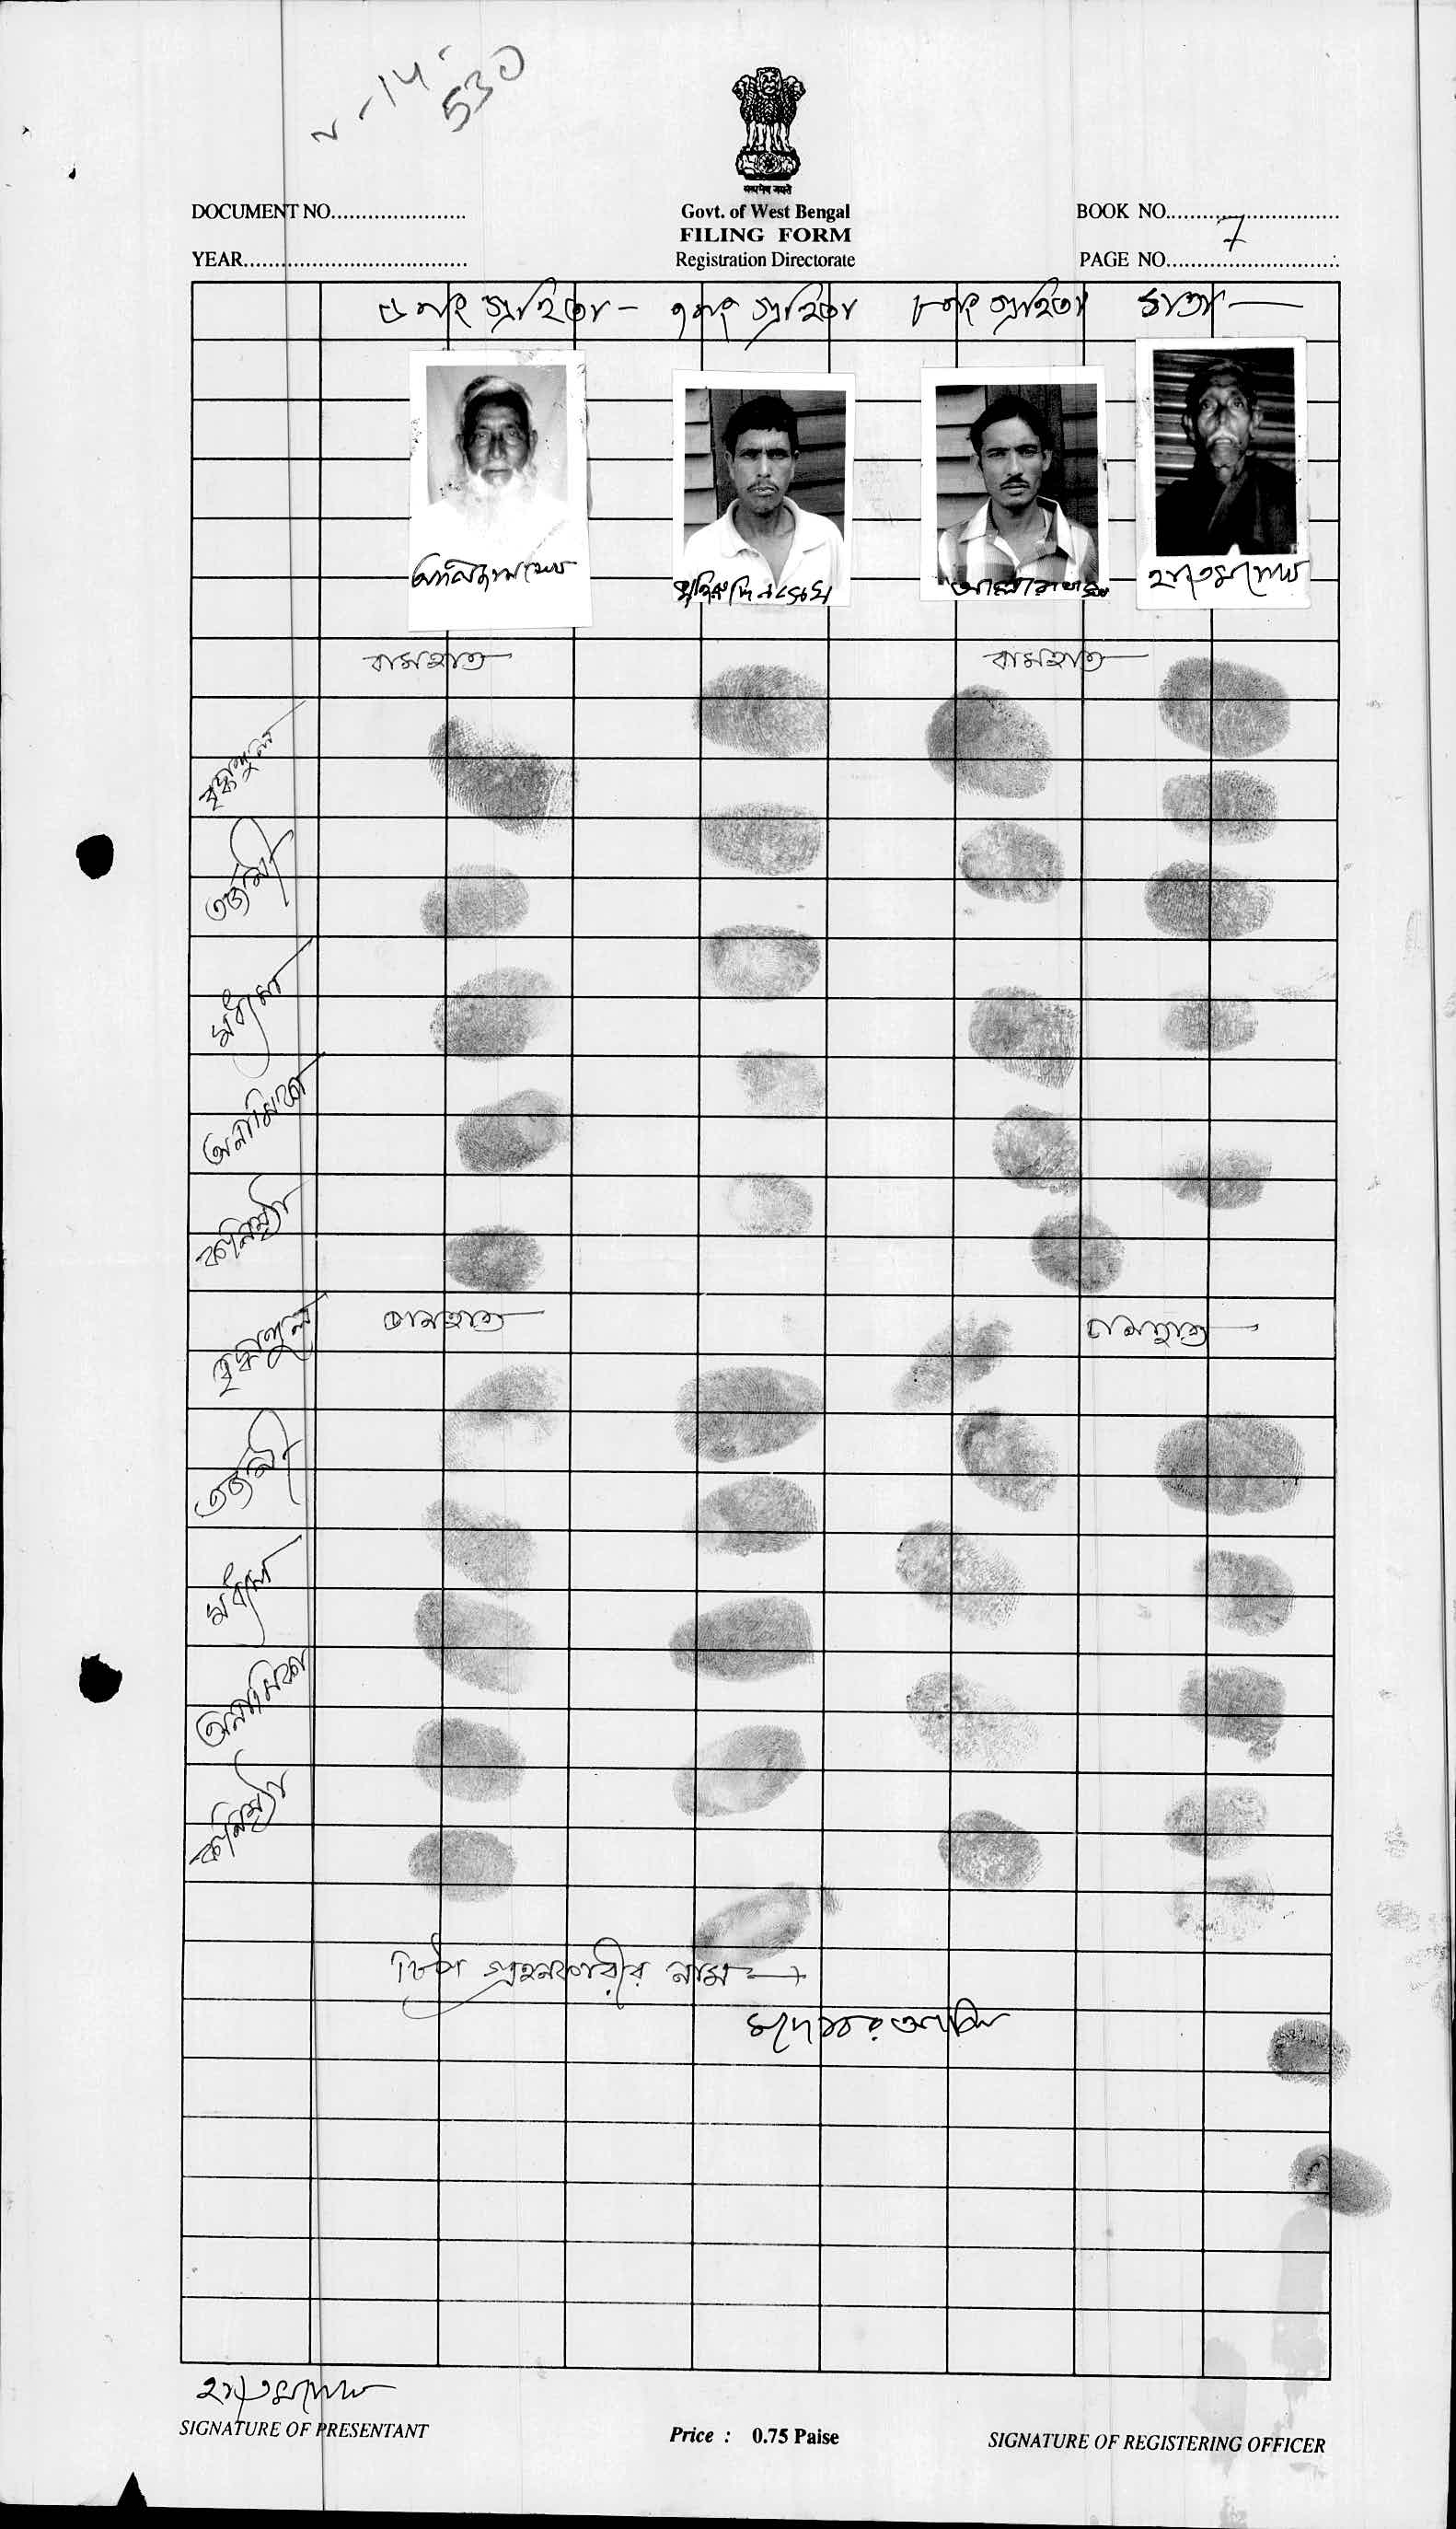 ५ - 14
530
सत्यमेव जयते
DOCUMENT NO......................
Govt. of West Bengal
BOOK NO............................
FILING FORM
7
YEAR....................................
Registration Directorate
PAGE NO............................
৬ নং গ্রহিতা — ৭নং গ্রহিতা ৮নং গ্রহিতা দাতা —
বামহাত বামহাত
বৃদ্ধাঙ্গুল
তর্জনী
মধ্যমা
অনামিকা
কনিষ্ঠা
ডানহাত ডানহাত
বৃদ্ধাঙ্গুল
তর্জনী
মধ্যমা
অনামিকা
কনিষ্ঠা
টিপ গ্রহনকারীর নাম →
SIGNATURE OF PRESENTANT
Price : 0.75 Paise
SIGNATURE OF REGISTERING OFFICER